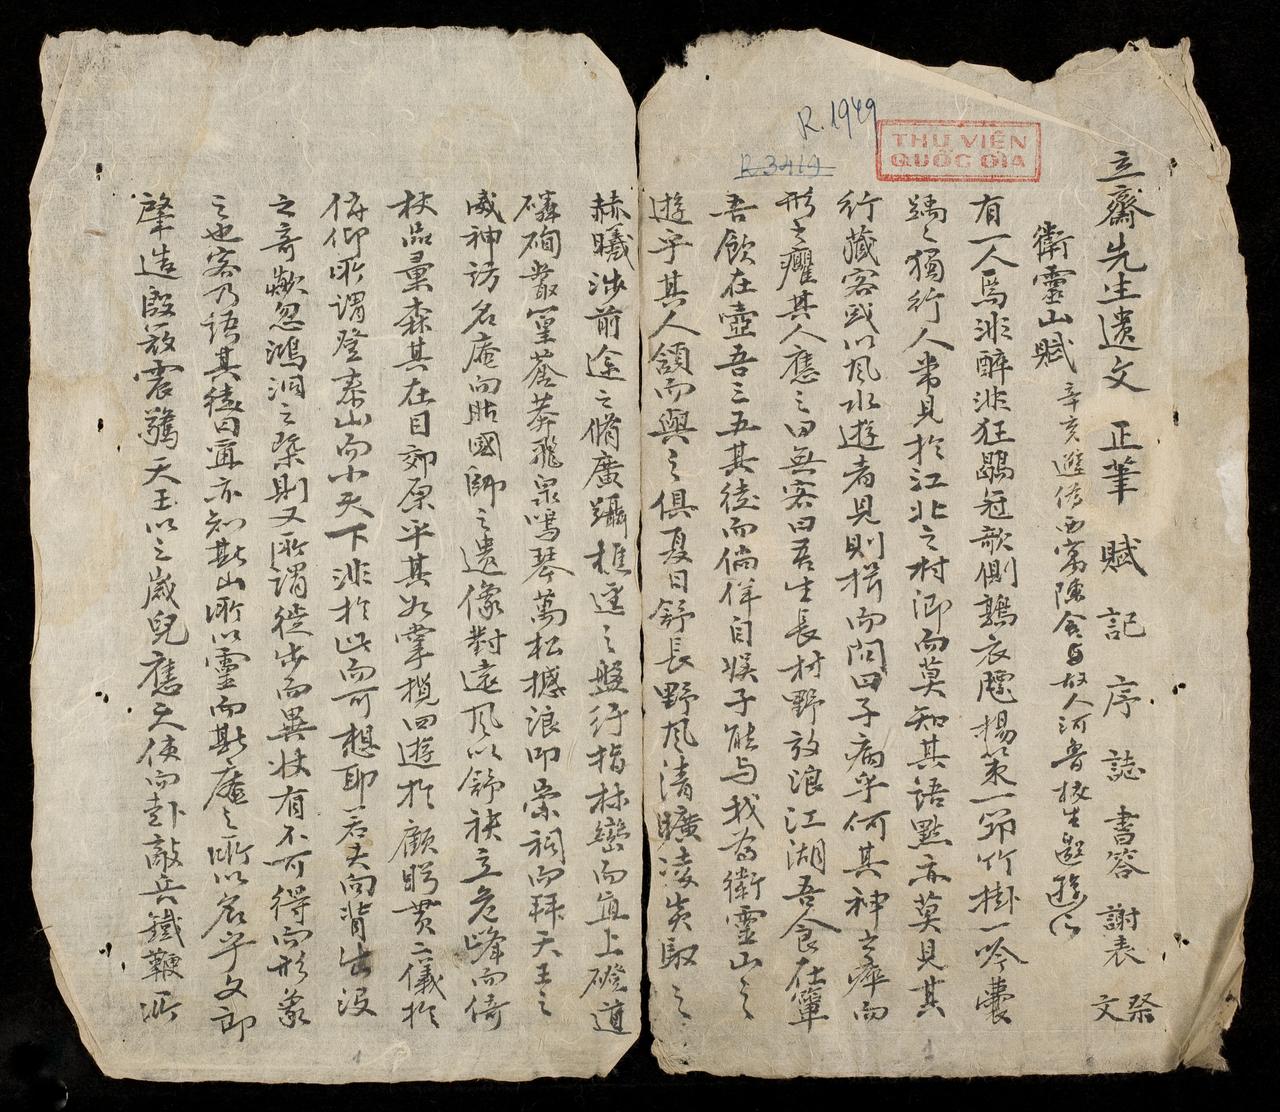 R.1949
R 3419
THƯ VIỆN
QUỐC GIA
立齋先生遺文 正筆 賦 記 序 誌 書答 謝表 祭文
衛靈山賦 辛亥避 西寓陳舍与故人河魯校生邀遊作
有一人焉非醉非狂鶡冠欹側鶉衣飄揚策一筇竹掛一吟囊
踽々獨行人常見於江北之村而莫知其語點亦莫見其
行藏客或以風水遊者見則揖而問曰子病乎何其神之瘁而
形之癯其人應之曰無客曰吾生長村野放浪江湖吾食在簞
吾飲在壺吾三五其徒而徜徉自娛子能与我為衛靈山之
遊乎其人頷而與之俱夏日舒長野風清曠凌炎馭之
赫曦涉前途之脩廣躡樵逕之盤紆指林巒而直上磴道
磷砠叢篁蒼莽飛泉鳴琴萬松撼浪叩崇祠而拜天王之
威神訪名庵而貽國師之遺像對遠風以舒袂立危峰而倚
杖品彙森其在目郊原平其如掌攬四遊於顧眄貫二儀於
俯仰所謂登泰山而小天下非於此而可想耶若夫向背出沒
之奇歘忽鴻洞之槩則又所謂徙步而異狀有不可得而形象
之也客乃語其徒曰亦知斯山所以靈而斯庵之所以名乎文郎
肇造殷寇震驚天王以三歲兒應天使而卦敵兵鐵鞭所